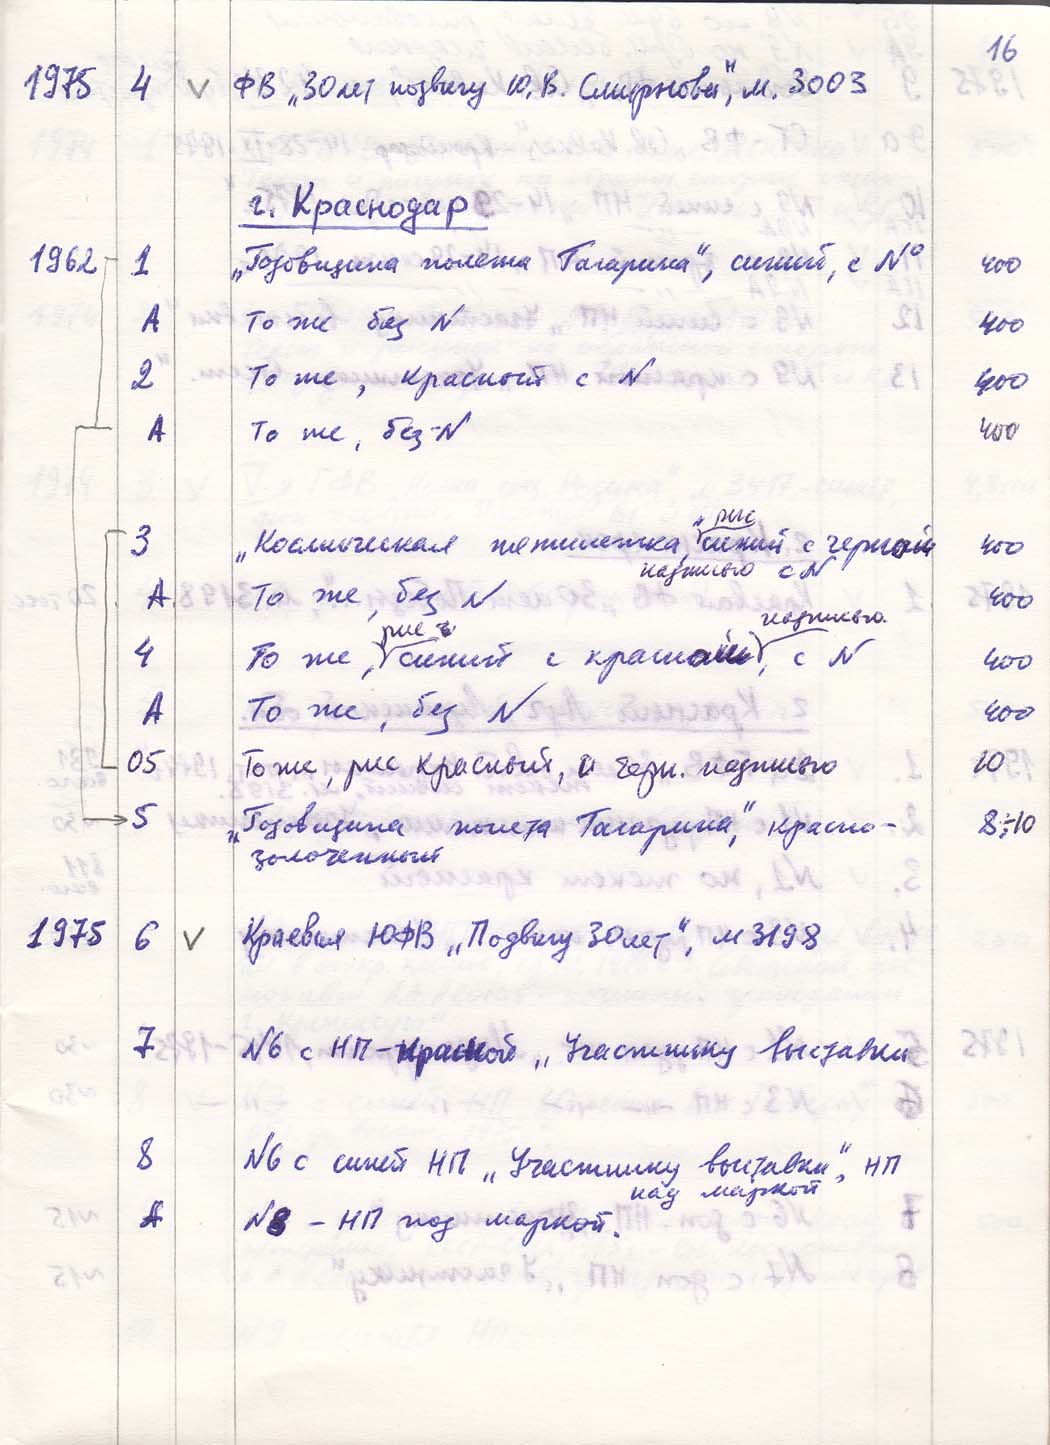 16
1975 4 V ФВ „30 лет подвигу Ю.В. Смирнова", м. 3003
г. Краснодар
1962 1 „Годовщина полета Гагарина", синий, с № 400
А То же без N 400
2 То же, красный с N 400
А То же, без N 400
3 „Космическая пятилетка", рис синий с черной надписью с N 400
А То же, без N 400
4 То же, рис. синий с красной надписью, с N 400
А То же, без N 400
05 То же, рис красный, с черн. надписью 10
5 „Годовщина полета Гагарина", красно-
золоченный 8÷10
1975 6 V Краевая ЮФВ „Подвигу 30 лет", м 3198
7 N6 с НП-красной „Участнику выставки
8 N6 с синей НП „Участнику выставки", НП
над маркой
А N8 - НП под маркой.